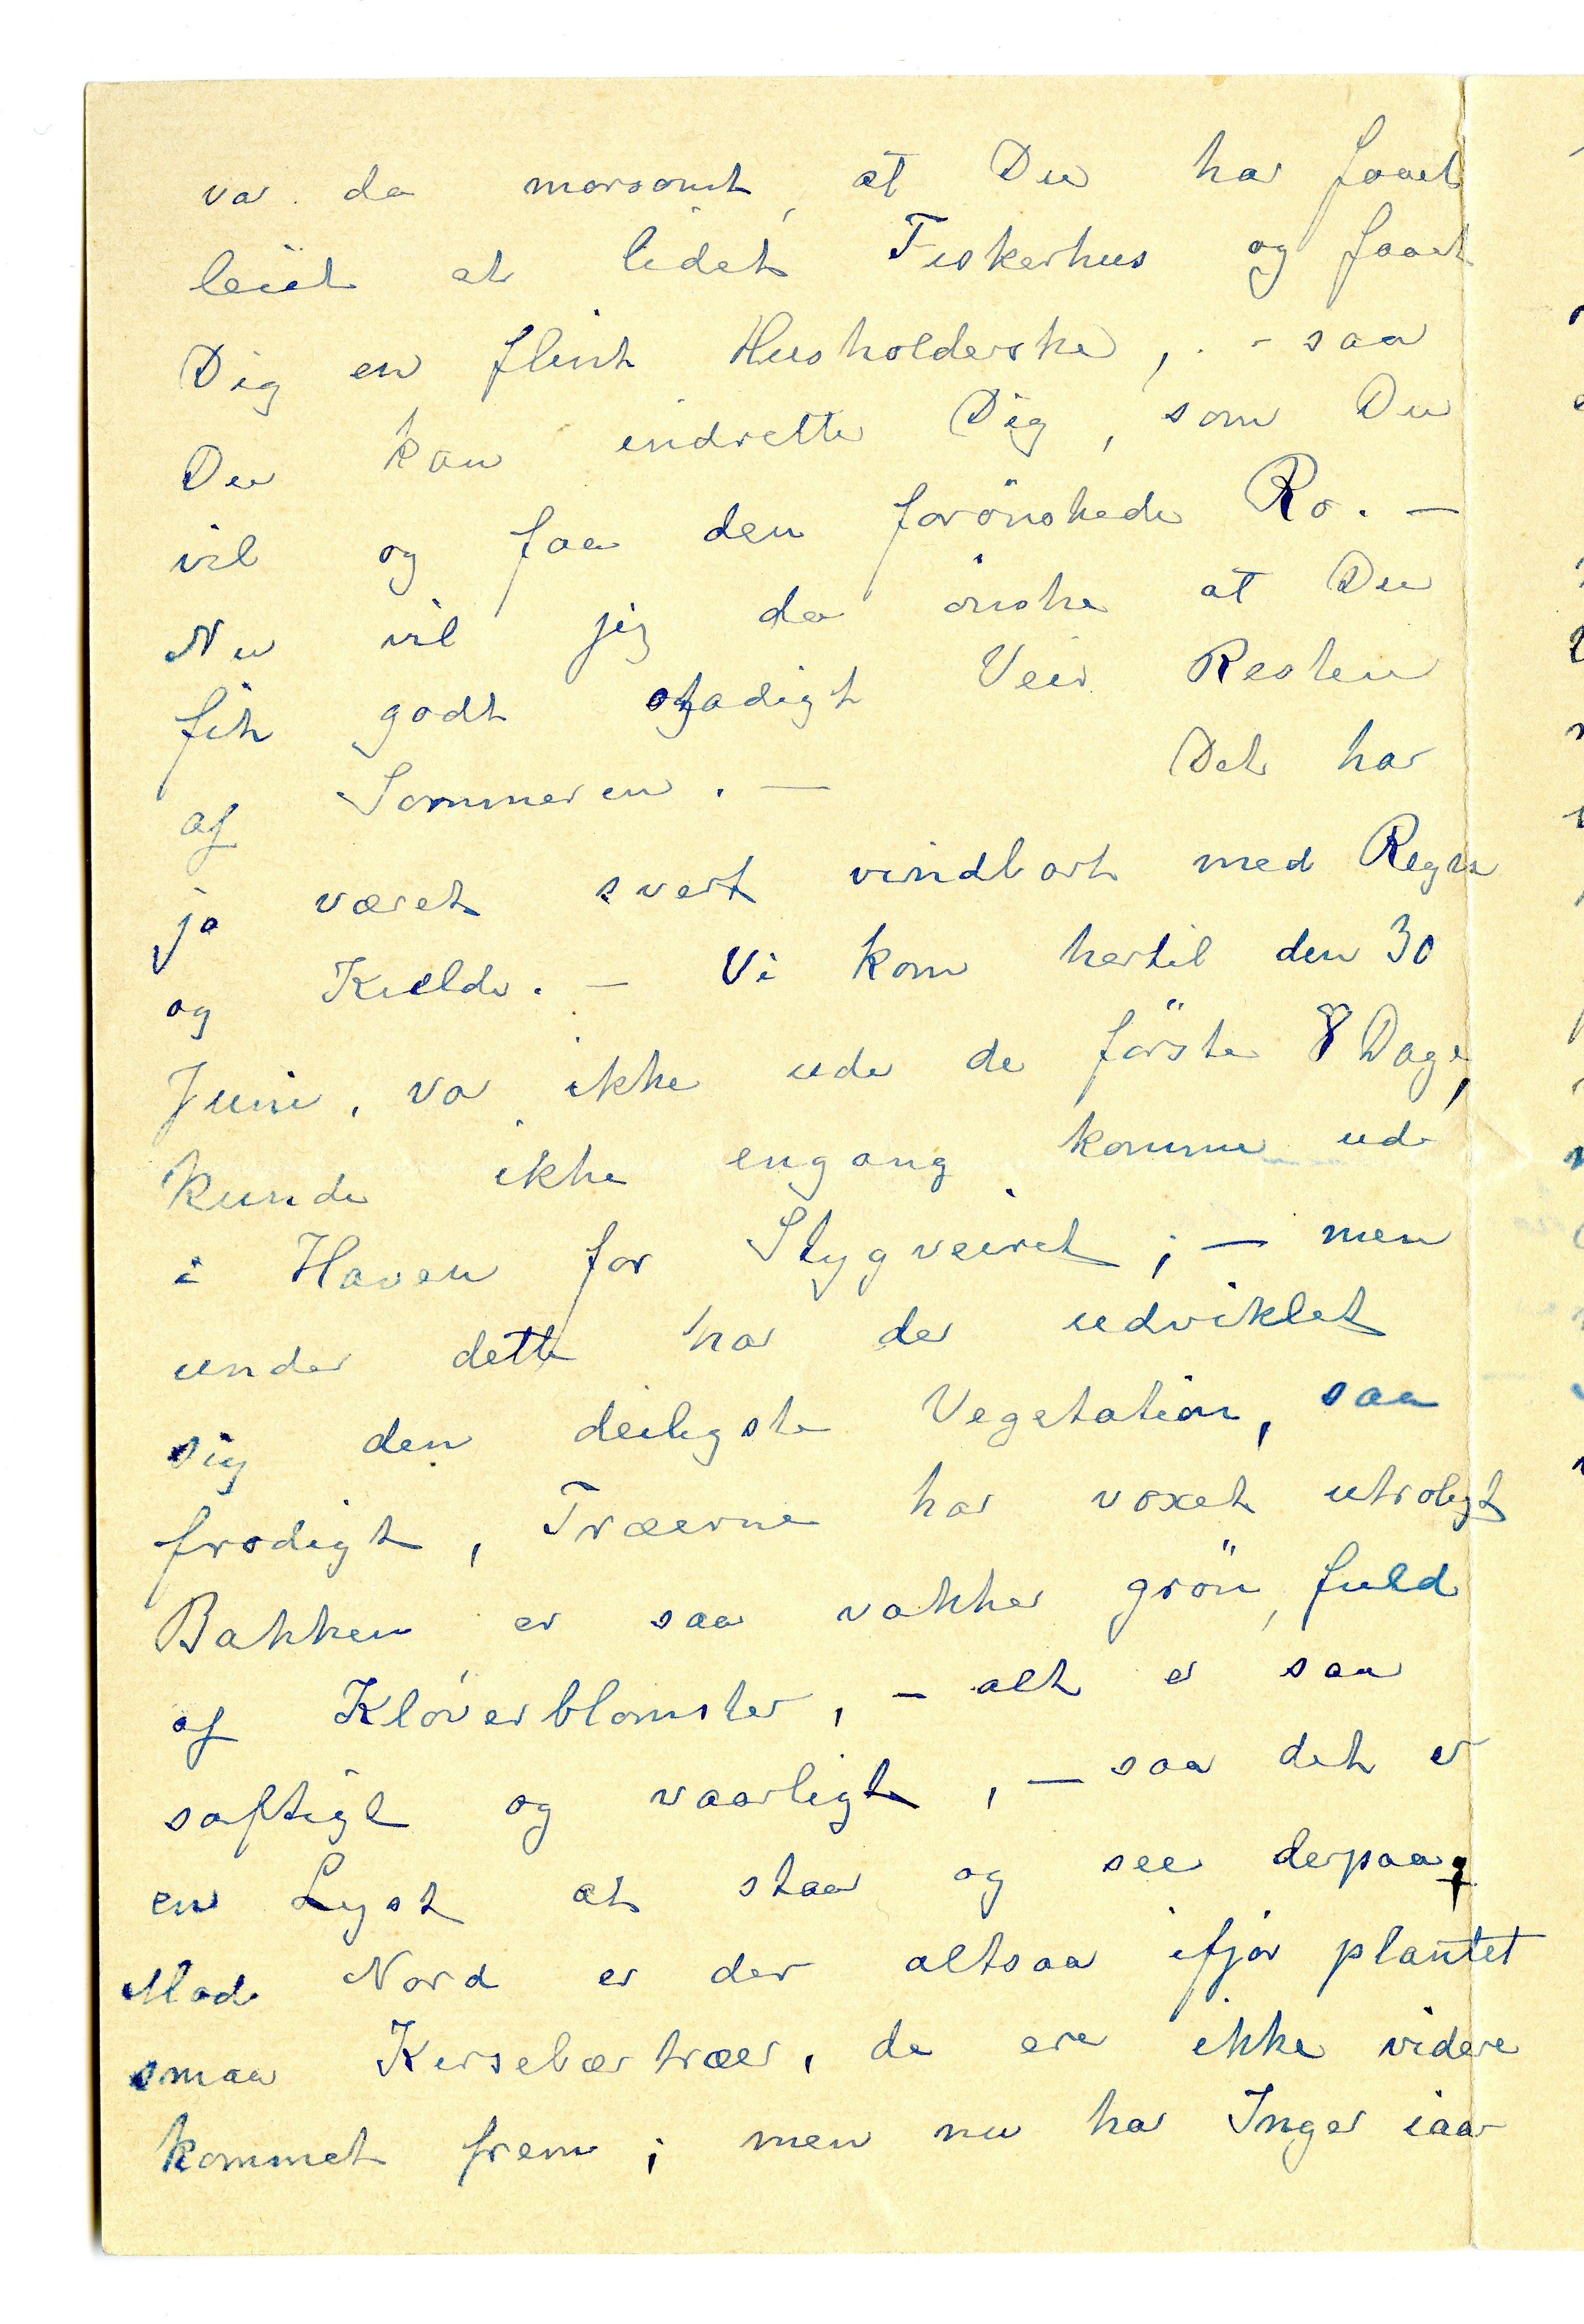 var da morsomt, at Du har faaet
leiet et lidet Fiskerhus og faaet
Dig en flink Husholderske, - saa
Du kan indrette Dig, som Du
vil og faa den forönskede Ro. —
Nu vil jeg da önske at Du
fik godt stadigt Veir Resten
af Sommeren. — Det har
jo været svert vindbart med Regn
og Kulde. — Vi kom hertil den 30
Juni, var ikke ude de förste 8 Dage,
kunde ikke engang komme ud
i Haven for Stygveiret; — men
under dette har der udviklet
sig den deiligste Vegetation, saa
frodigt, Træerne har voxet utroligt
Bakken er saa vakker grön, fuld
af Klöverblomster, - alt er saa
saftigt og vaarligt, — saa det er
en Lyst at staa og see derpaa;
Mod Nord er der altsaa ifjor plantet
smaa Kirsebærtræer, de ere ikke videre
kommet frem; men nu har Inger iaar